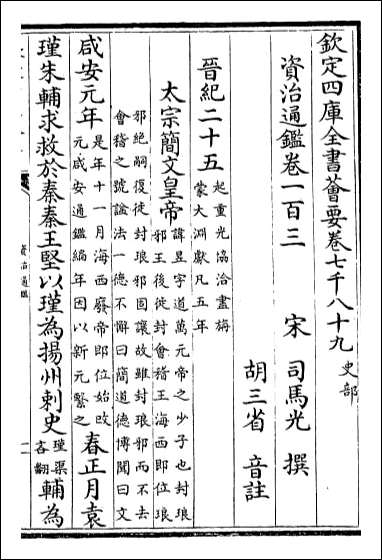 欽定四庫全書薈要卷七千八十九 史部
資治通鑑卷一百三
宋 司馬光 撰
胡三省 音註
晉紀二十五 起重光協洽盡旃
蒙大淵獻凡五年
太宗簡文皇帝 諱昱字道萬元帝之少子也封琅
邪王後徙封會稽王海西即位琅
邪絶嗣復徙封琅邪固讓故雖封琅邪而不去
會稽之號諡法一德不懈曰簡道德博聞曰文
咸安元年 是年十一月海西廢帝即位始改
元咸安通鑑編年因以新元繫之 春正月袁
瑾朱輔求救於秦秦王堅以瑾為揚州刺史 瑾渠
吝翻 輔為
資治通鑑
一